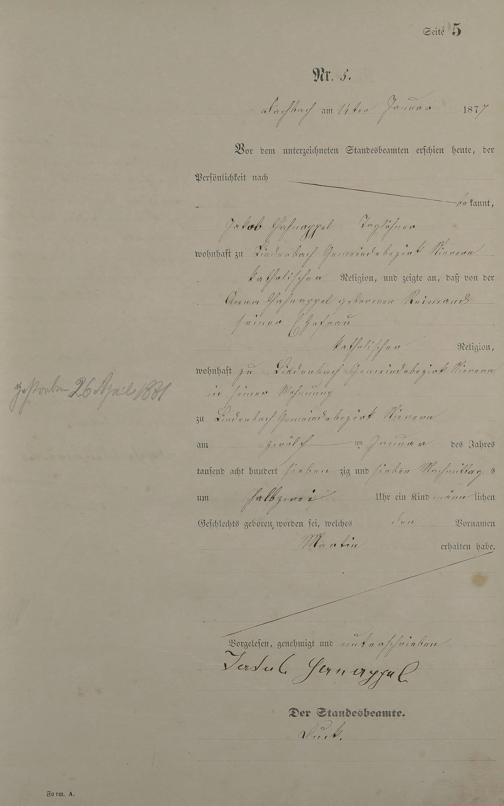 Seite 5
Nr. 5.
am 14ten Januar 1877
Vor dem unterzeichneten Standesbeamten erschien heute, der
Persönlichkeit nach
bekannt,
Jakob Tagelöhner
wohnhaft zu Lindenbach Gemeindebezirk
katholischer Religion, und zeigte an, daß von der
Anna geborenen
seiner Ehefrau
katholischer Religion,
wohnhaft zu Lindenbach Gemeindebezirk
in seiner Wohnung
zu Lindenbach Gemeindebezirk
am zwölf ten Januar des Jahres
tausend acht hundert sieben zig und sieben Nachmittag s
um halbzwei Uhr ein Kind männ lichen
Geschlechts geboren worden sei, welches den Vornamen
Martin erhalten habe.
gestorben 26 April 1881
Vorgelesen, genehmigt und unterschrieben
Jakob
Der Standesbeamte.
Form. A.